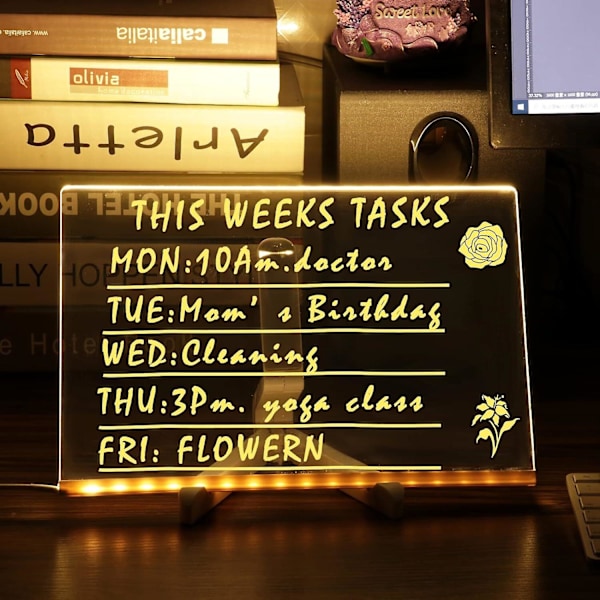 callaitalia
olivia
Arletta
THE HOTEL BOOK
LLY HOPPEN STYLE
e Hote
Sweet Love
THIS WEEKS TASKS
MON:10Am.doctor
TUE:Mom's Birthday
WED:Cleaning
THU:3Pm. yoga class
FRI: FLOWERN